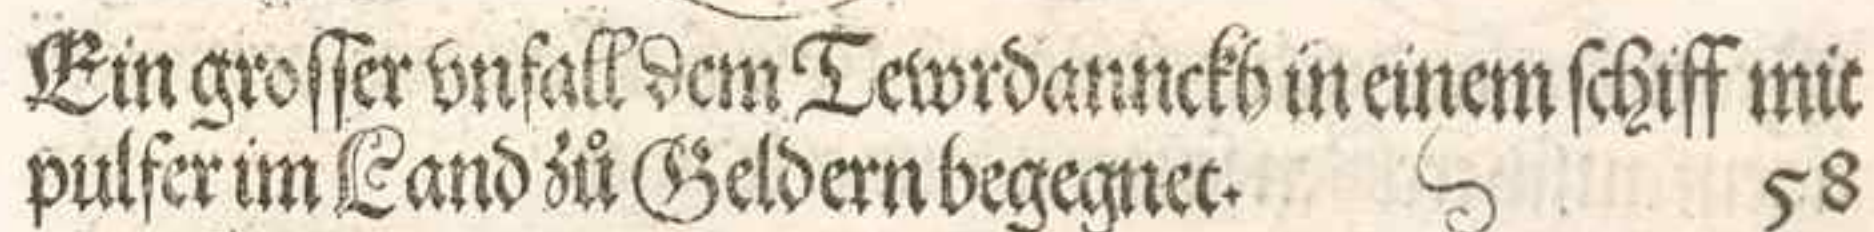 Ein grosser vnfall dem Tewrdannckh in einem schiff mit
pulfer im Land zů Geldern begegnet. 58